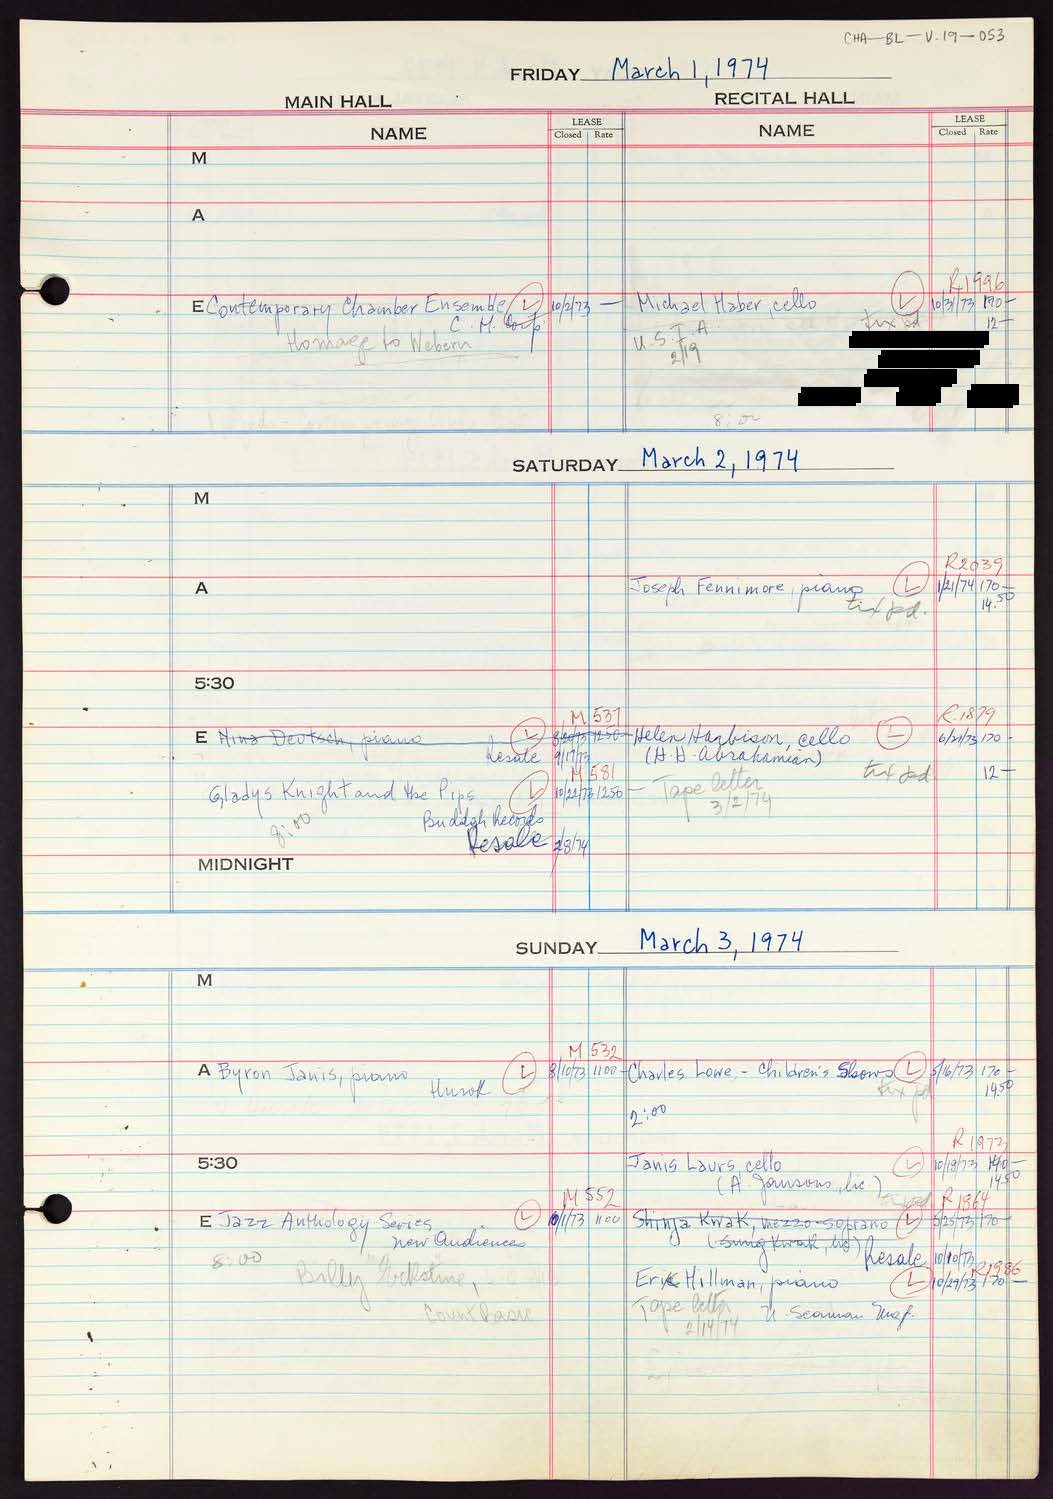 CHA-BL-V.19-053
FRIDAY March 1, 1974
MAIN HALL RECITAL HALL
NAME LEASE Closed Rate NAME LEASE Closed Rate
M
A
R1996
E Contemporary Chamber Ensemble L 10/2/73 — Michael Haber, cello L 10/3/73 170—
C.M. tix pd 12—
Homage to Webern U.S.I.A.
2/19
8:00
SATURDAY March 2, 1974
M
R2039
A Joseph Fennimore, piano L 1/21/74 170—
tix pd. 14.50
5:30
M 537 R.1879
E Nina Deutsch, piano L 1250— Helen Harbison, cello L 6/21/73 170—
Resale 9/17/73 (H.H. Abrahamian)
M 581 tix pd 12—
Gladys Knight and the Pips L 10/22/73 1250— Tape letter
8:00 Buddah Records 3/2/74
Resale 2/8/74
MIDNIGHT
SUNDAY March 3, 1974
M
M 532
A Byron Janis, piano L 8/10/73 1100— Charles Lowe - Children's Shows L 5/16/73 170—
Hurok tix pd 14.50
2:00
R 1972
5:30 Janis Laurs, cello L 10/18/73
(A. Jansons, lic.) 14.50
M 552 tix pd R 1864
E Jazz Anthology Series L 10/1/73 1100 Shinja Kwak, mezzo-soprano L 5/25/73 170—
New Audiences (Sung Kwak, lic) Resale 10/10/73
8:00 R1986
Billy Eckstine, Eric Hillman, piano L 10/29/73 170—
Count Basie Tape letter N. Seaman Mgt.
2/14/74